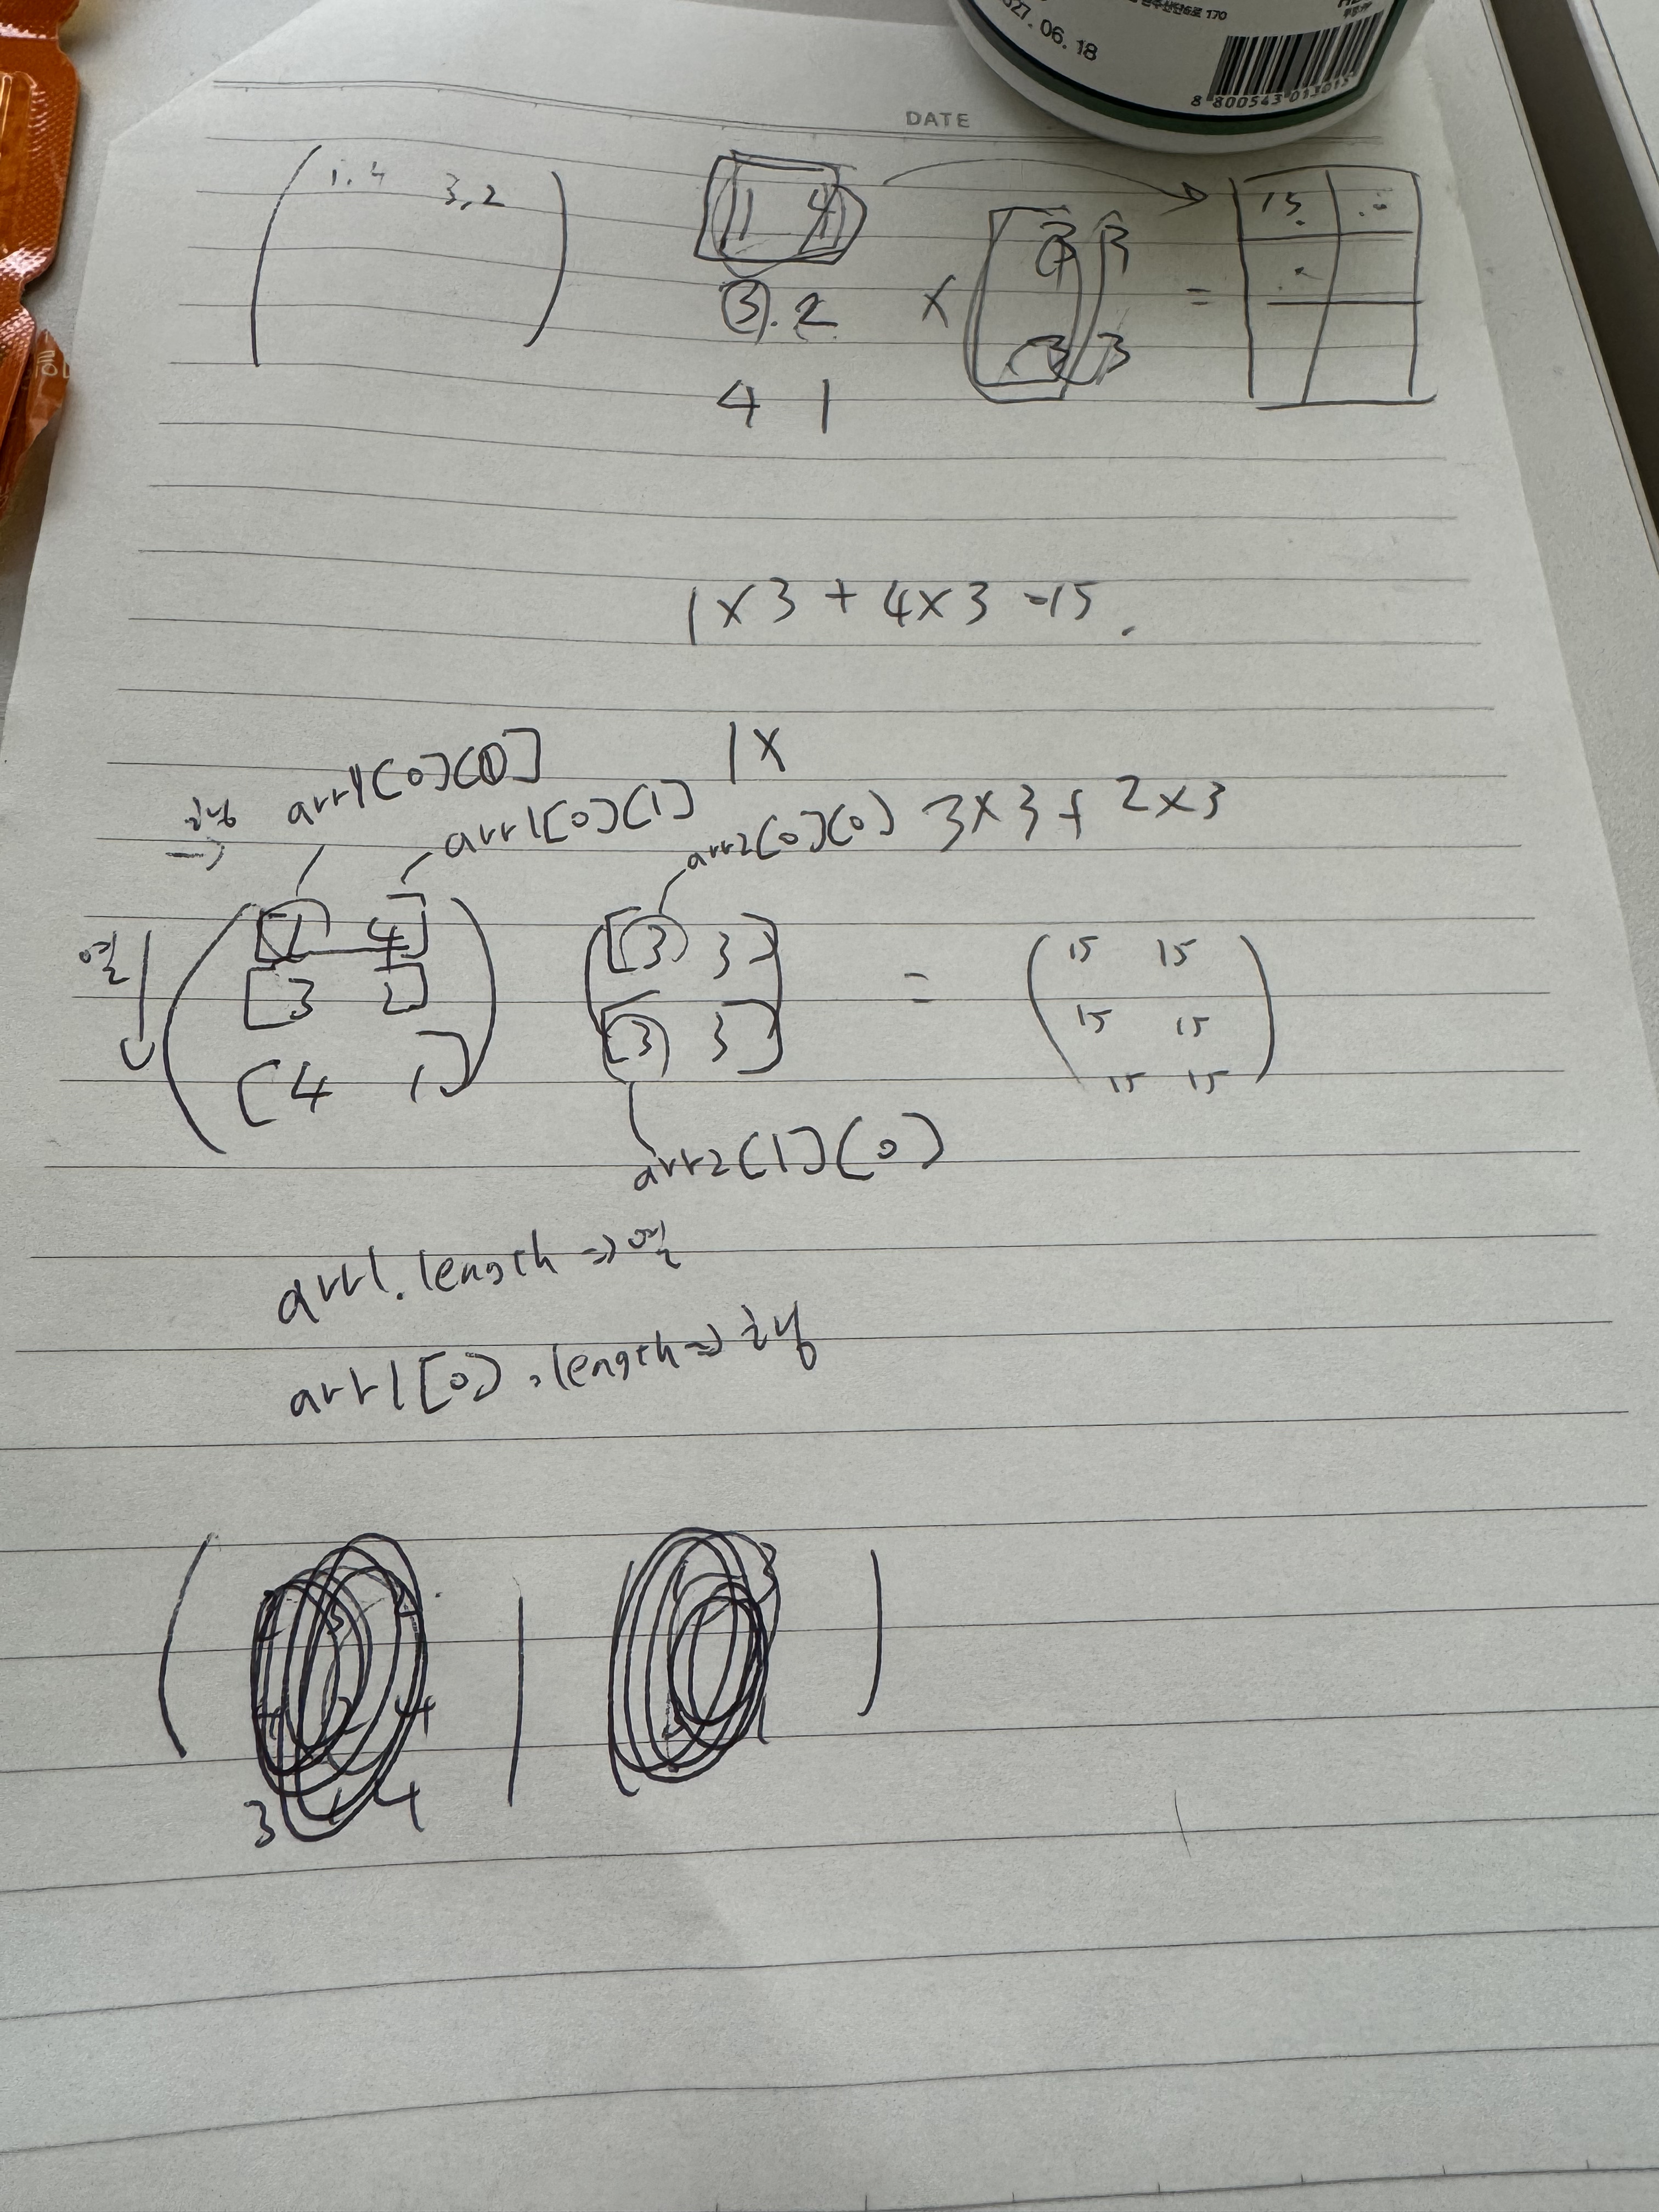 027. 06. 18
8 800543 013015
DATE
1. 4 3, 2
1 4
3. 2
4 1
×
3 3
3 3
=
15.
1 × 3 + 4 × 3 = 15.
1 ×
arr1[0][0]
arr1[0][1]
arr2[0][0]
3 × 3 + 2 × 3
행
→
열
1 4
3 2
4 1
3 3
3 3
=
15 15
15 15
15 15
arr2[1][0]
arr1.length => 열
arr1[0].length => 행
3 4